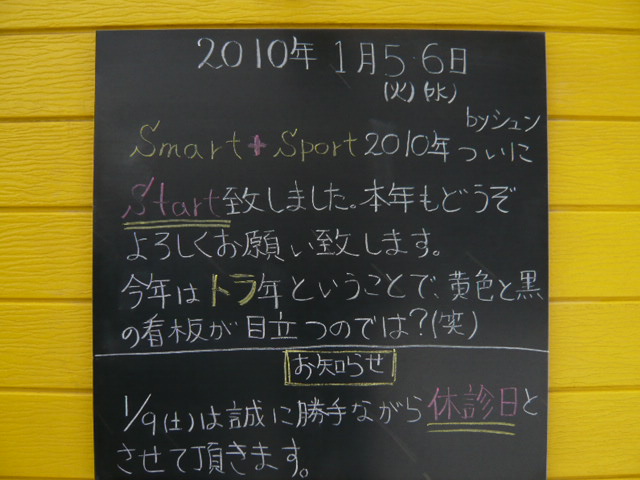 2010年 1月5・6日
(火)(水)
byシュン
Smart+Sport2010年ついに
Start致しました。本年もどうぞ
よろしくお願い致します。
今年はトラ年ということで、黄色と黒
の看板が目立つのでは?(笑)
お知らせ
1/9(土)は誠に勝手ながら休診日と
させて頂きます。